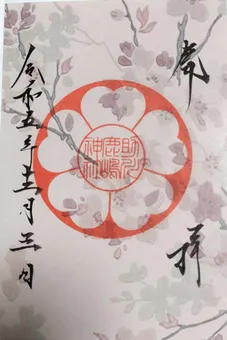 奉拝
助川
鹿嶋
神社
令和五年十一月三日